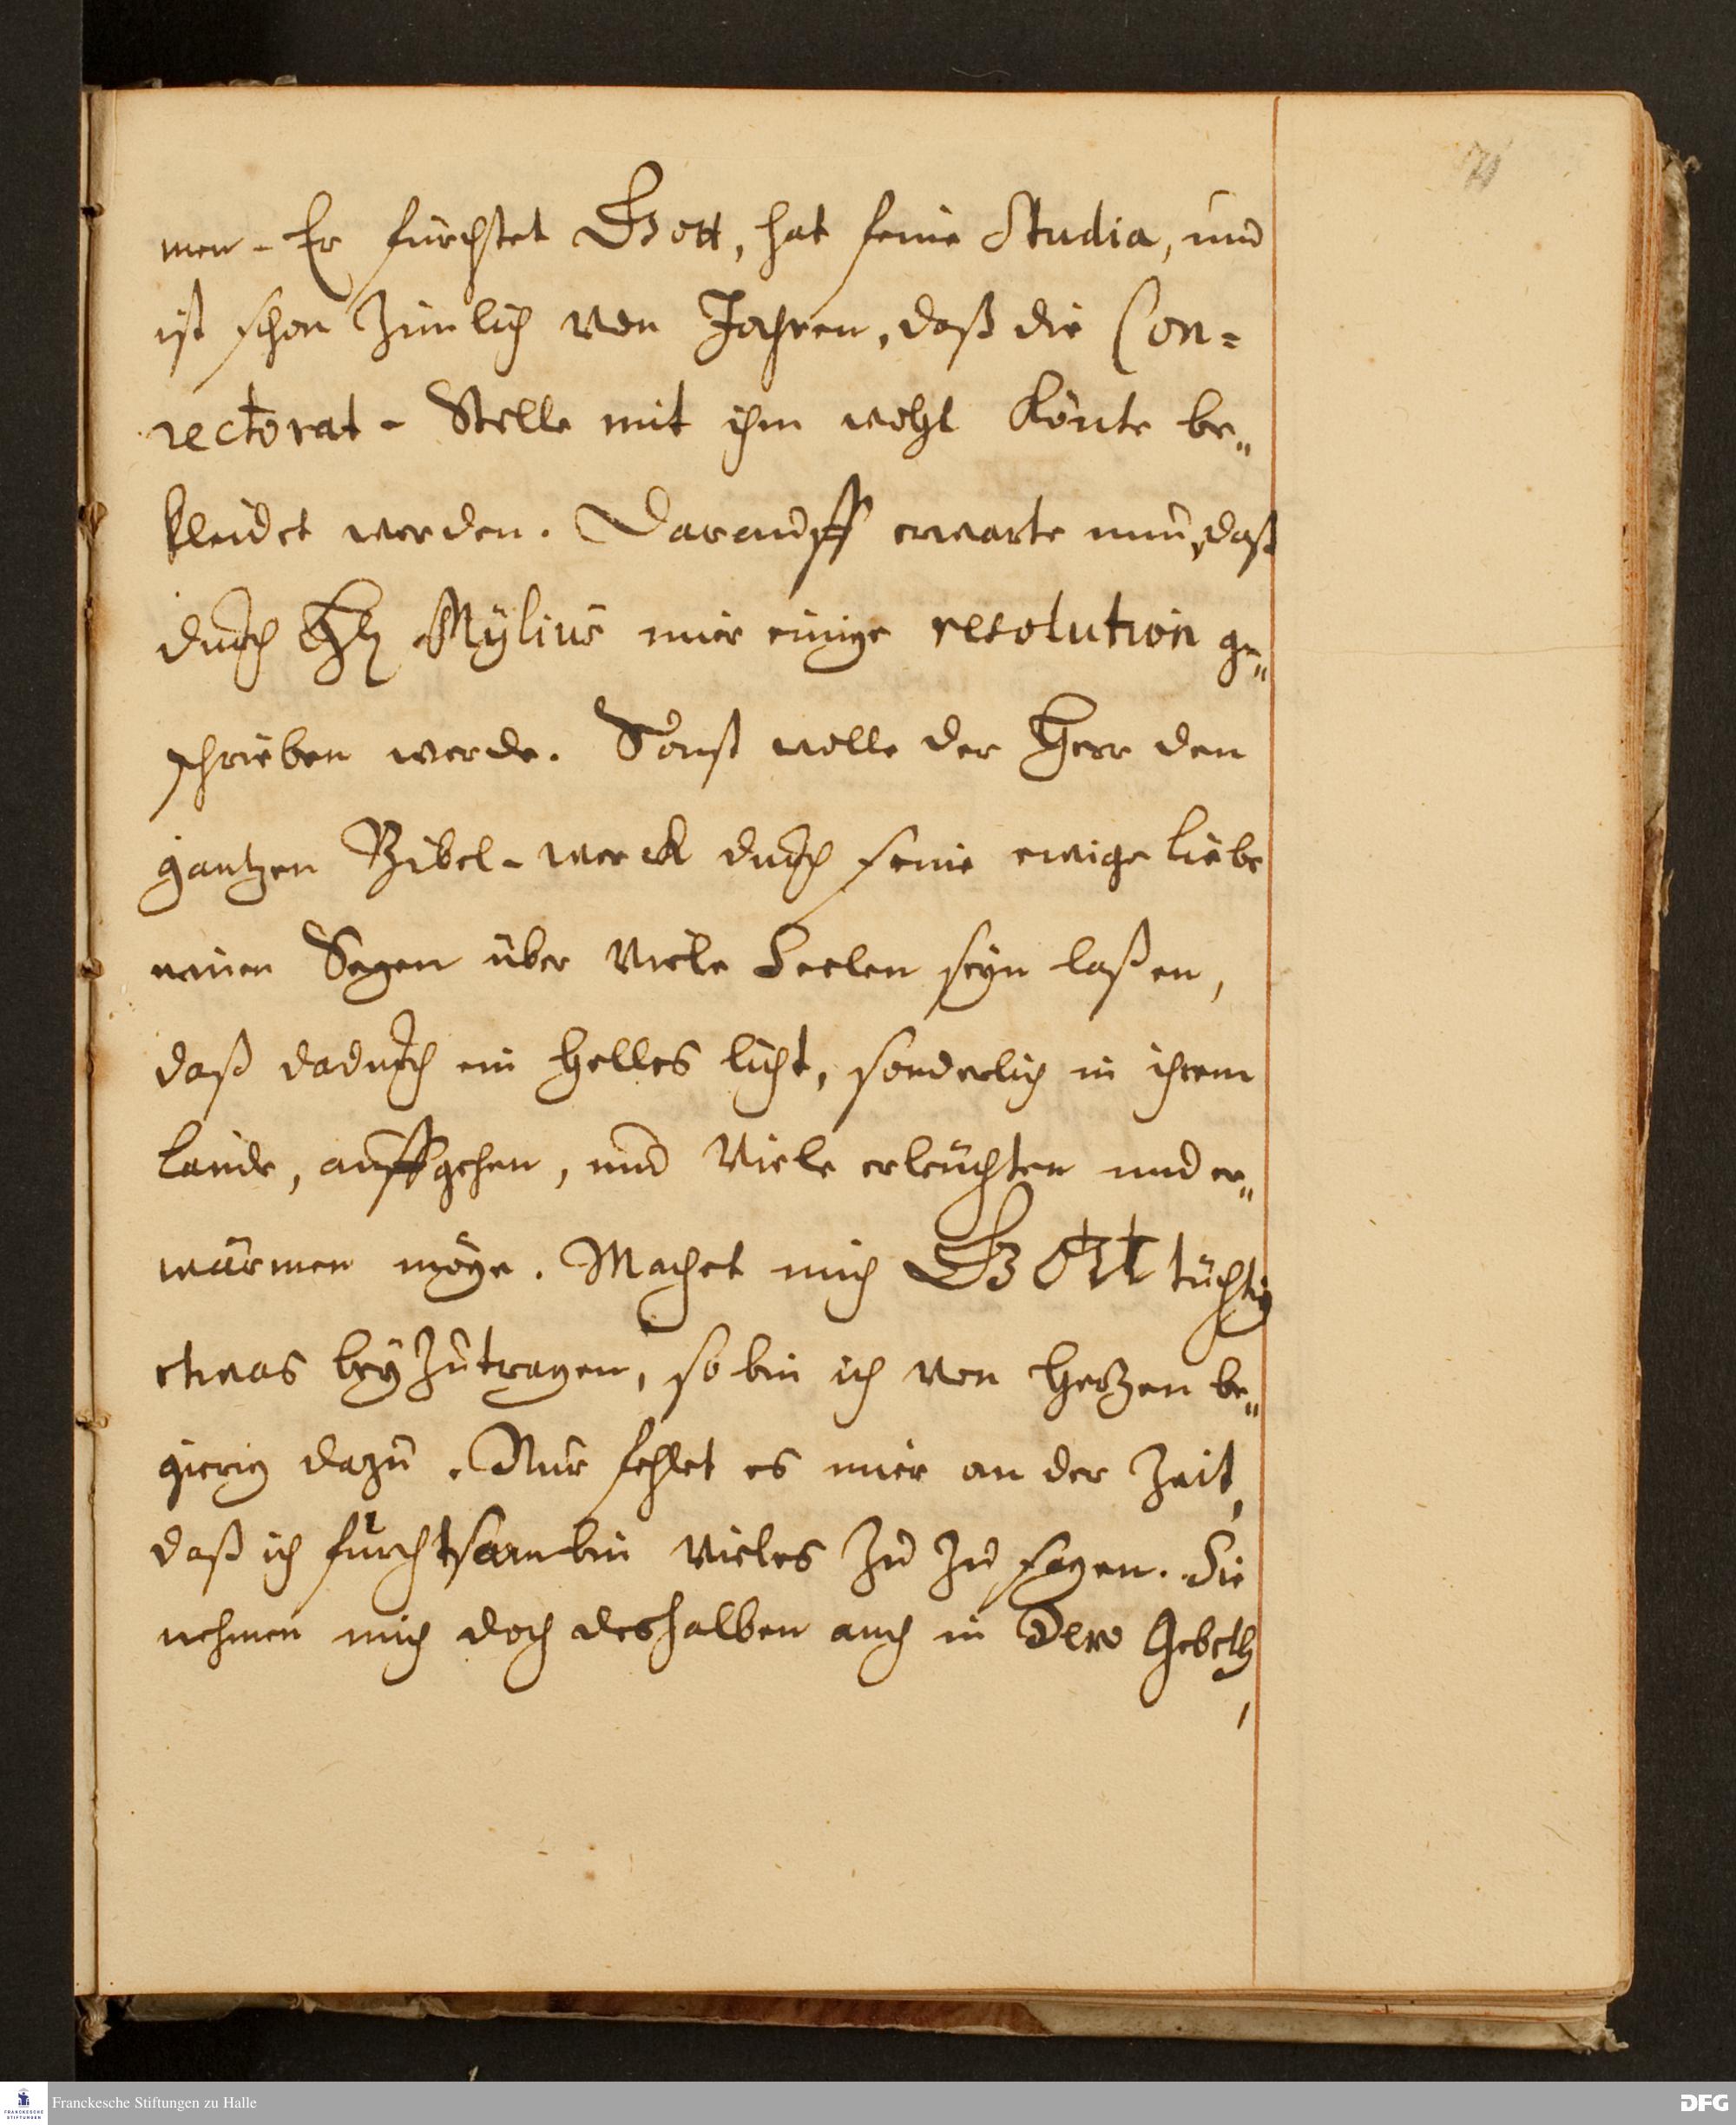 men. Er fürchtet Gott, hat seine Studia, und
ist schon zimlich von Jahren, daß die Con=
rectorat-Stelle mit ihm wohl könte be„
kleidet werden. Darauff erwarte nun, daß
durch Hn Mylius mir einige resolution ge„
schrieben werde. Sonst wolle der Herr den
gantzen Bibel-werck durch seine ewige Liebe
einen Segen über viele Seelen seyn laßen,
daß dadurch ein helles licht, sonderlich in ihrem
Lande, auffgehen, und viele erleuchten und er„
wärmen möge. Machet mich GOtt tüchtig
etwas beyzutragen, so bin ich von Hertzen be„
gierig dazu. Nur fehlet es mir an der Zeit,
daß ich fürchtsam bin vieles zu zu sagen. Sie
nehmen mich doch deshalben auch in Dero Gebeth,
Franckesche Stiftungen zu Halle
FRANCKESCHE STIFTUNGEN
DFG